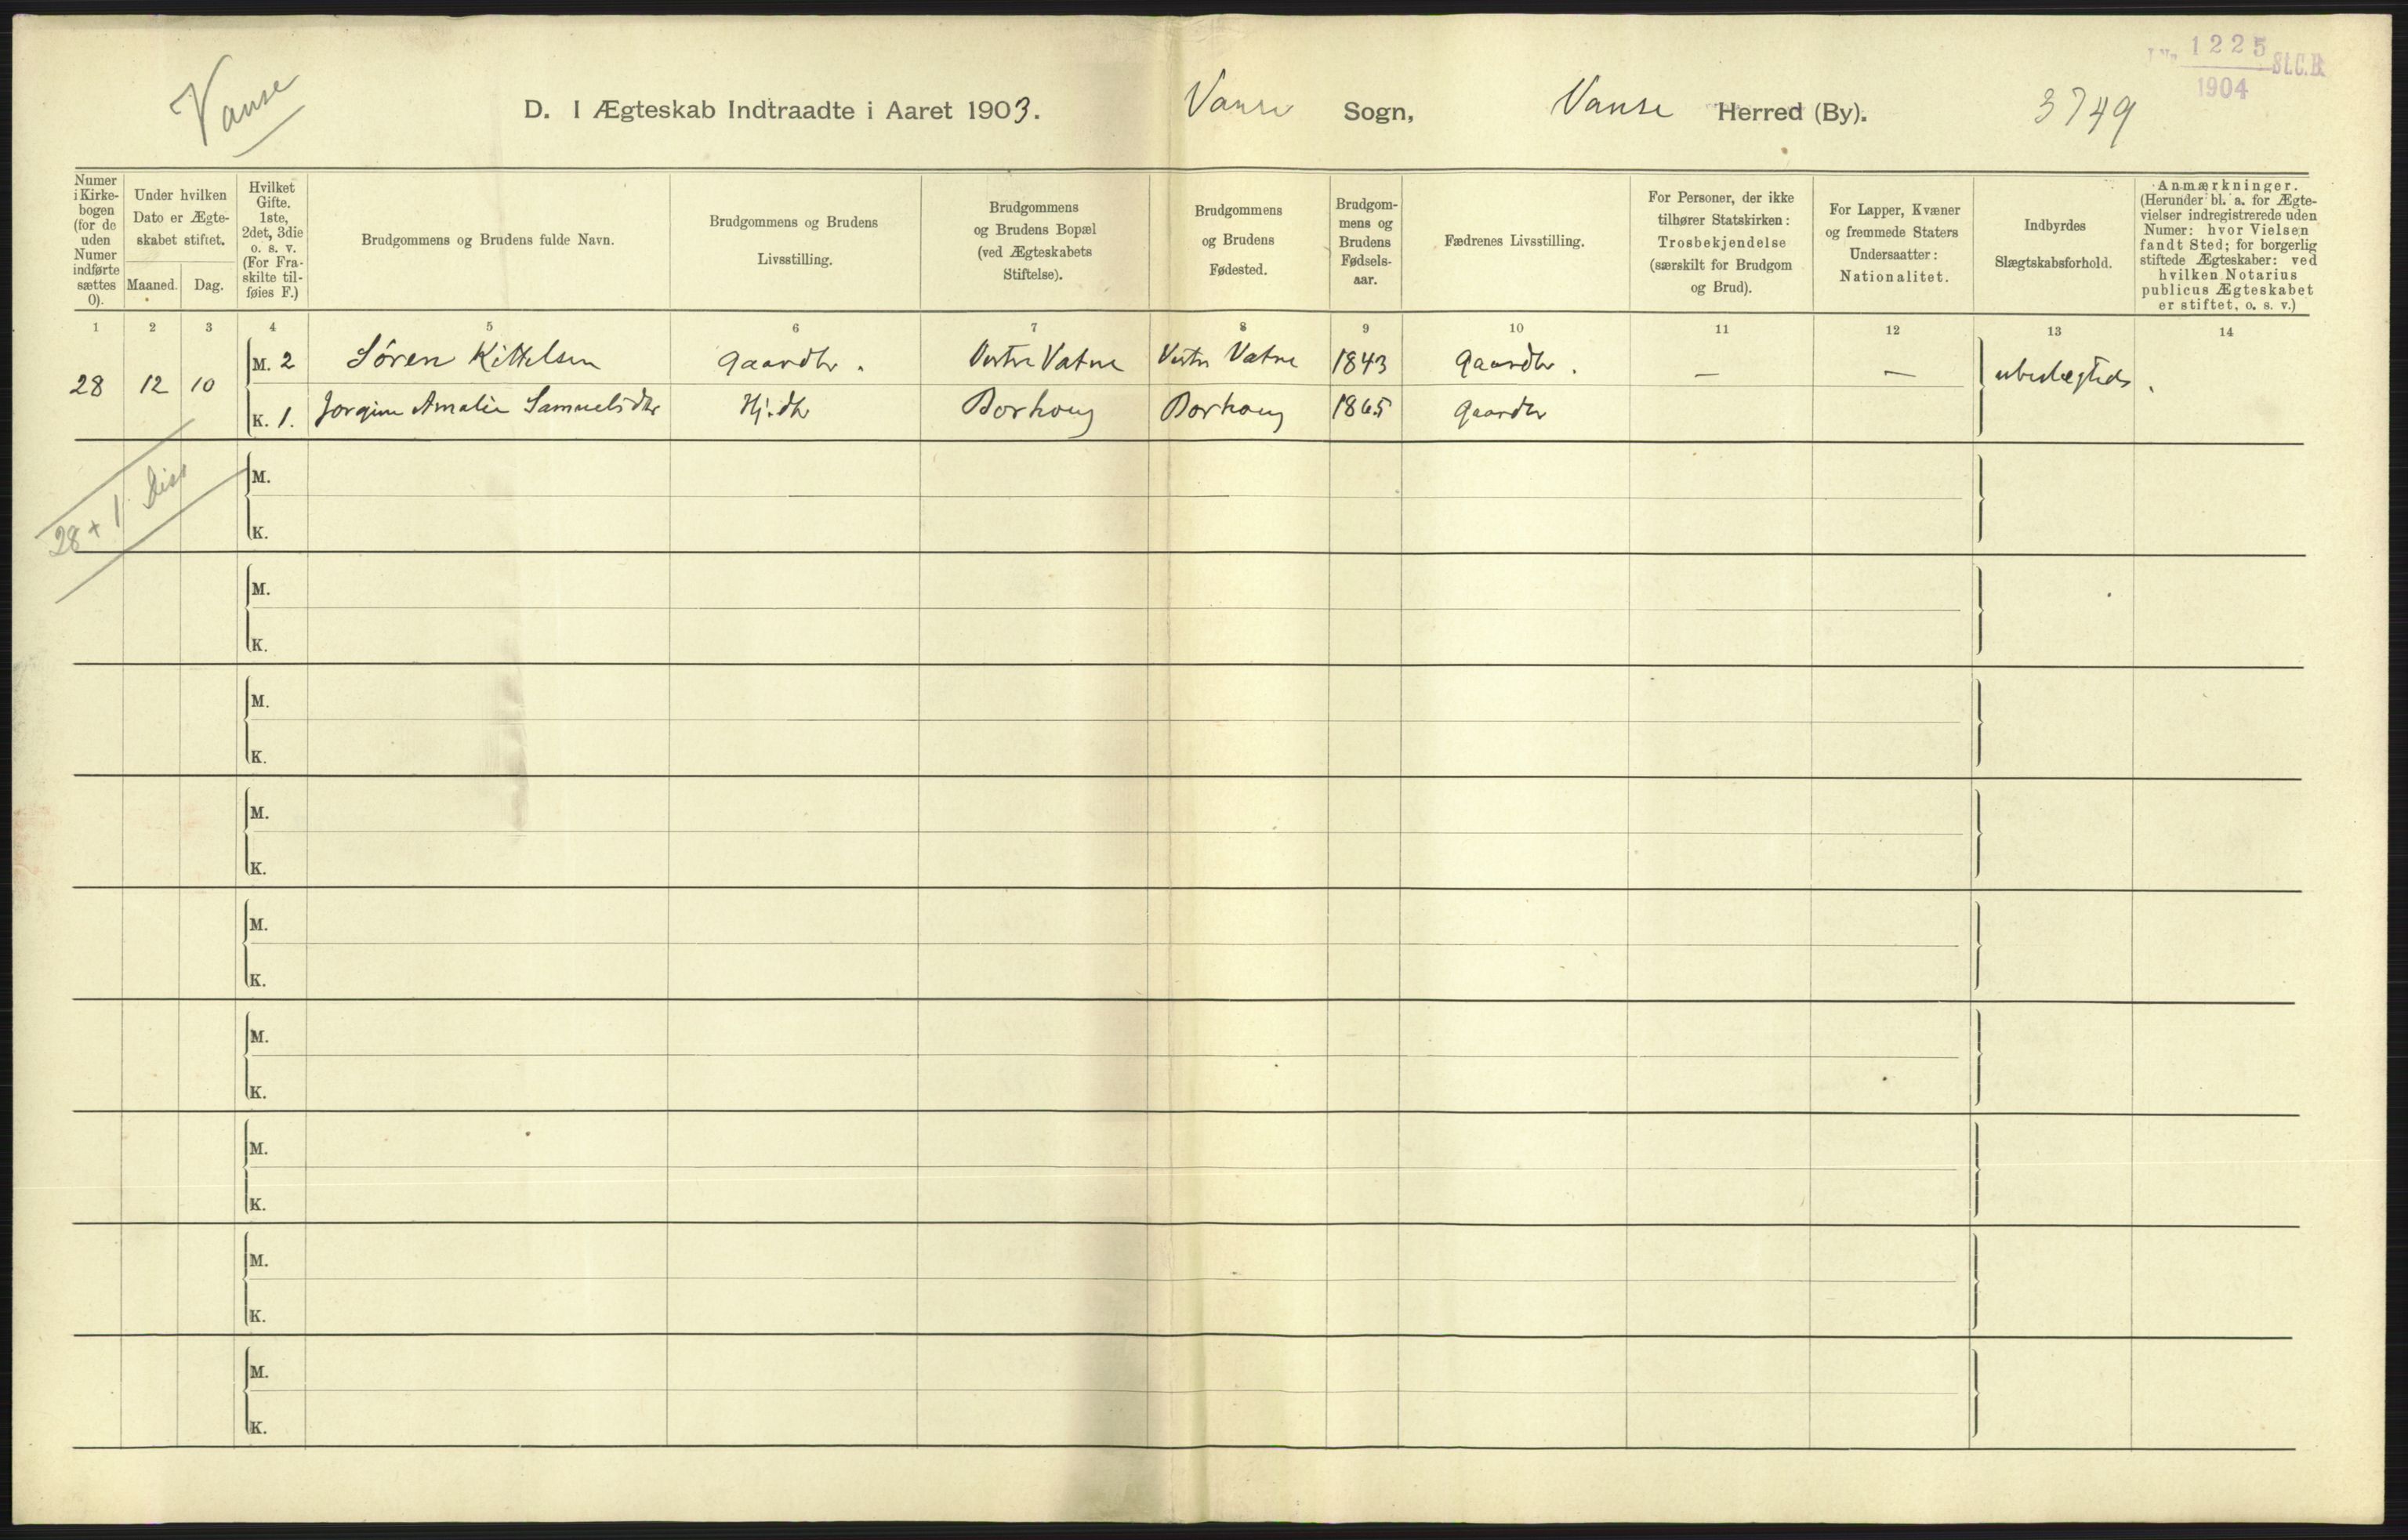 Vanse
D. I Ægteskab Indtraadte i Aaret 1903. Vanse Sogn, Vanse Herred (By). 3749
1225 St.C.B.
1904
Numer i Kirkebogen (for de uden Numer indførte sættes 0).
Under hvilken Dato er Ægteskabet stiftet.
Maaned. Dag.
Hvilket Gifte. 1ste, 2det, 3die o. s. v. (For Fraskilte tilføies F.)
Brudgommens og Brudens fulde Navn.
Brudgommens og Brudens Livsstilling.
Brudgommens og Brudens Bopæl (ved Ægteskabets Stiftelse).
Brudgommens og Brudens Fødested.
Brudgommens og Brudens Fødselsaar.
Fædrenes Livsstilling.
For Personer, der ikke tilhører Statskirken: Trosbekjendelse (særskilt for Brudgom og Brud).
For Lapper, Kvæner og fremmede Staters Undersaatter: Nationalitet.
Indbyrdes Slægtskabsforhold.
Anmærkninger. (Herunder bl. a. for Ægtevielser indregistrerede uden Numer: hvor Vielsen fandt Sted; for borgerlig stiftede Ægteskaber: ved hvilken Notarius publicus Ægteskabet er stiftet, o. s. v.)
1 2 3 4 5 6 7 8 9 10 11 12 13 14
28 12 10 M. 2 Søren Kittelsen Gaardbr. Vestre Vatne Vestre Vatne 1843 Gaardbr. — — ubeslægtede.
K. 1. Jorgine Amalie Samuelsdtr Hj. dtr Borhoug Borhoug 1865 Gaardbr
28 + 1 Diss
M.
K.
M.
K.
M.
K.
M.
K.
M.
K.
M.
K.
M.
K.
M.
K.
M.
K.